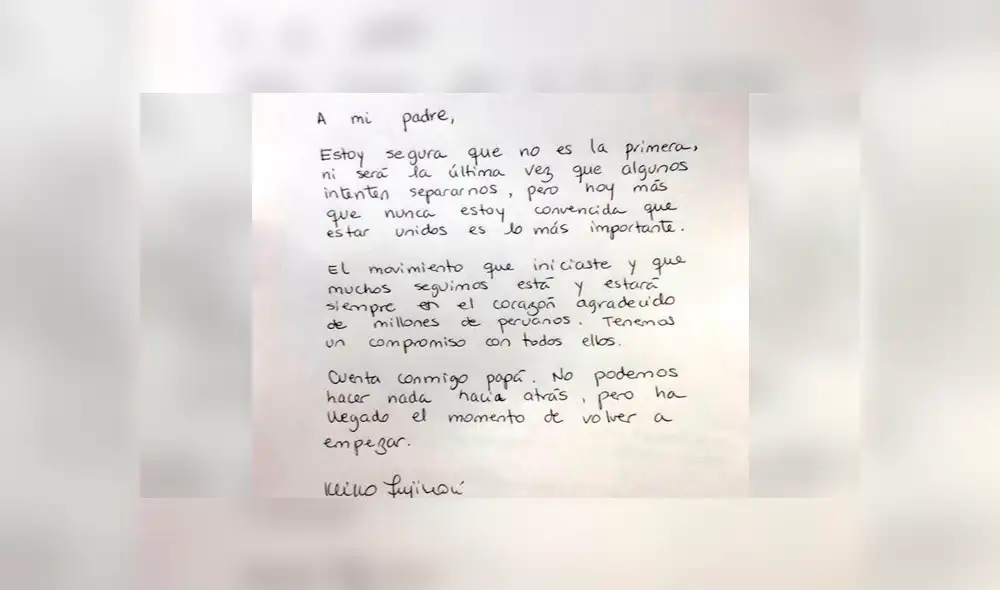 A mi padre,
Estoy segura que no es la primera,
ni será la última vez que algunos
intenten separarnos, pero hoy más
que nunca estoy convencida que
estar unidos es lo más importante.
El movimiento que iniciaste y que
muchos seguimos está y estará
siempre en el corazón agradecido
de millones de peruanos. Tenemos
un compromiso con todos ellos.
Cuenta conmigo papá. No podemos
hacer nada hacia atrás, pero ha
llegado el momento de volver a
empezar.
Keiko Fujimori